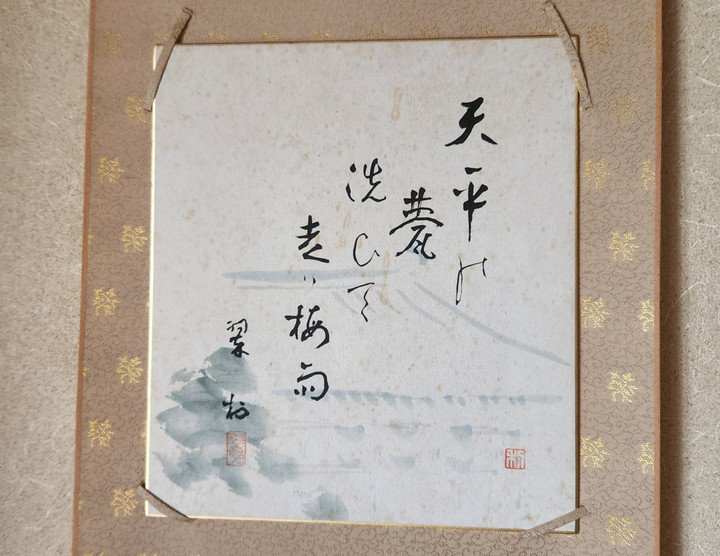 天平の
甍
洗ひて
走り梅雨
翠